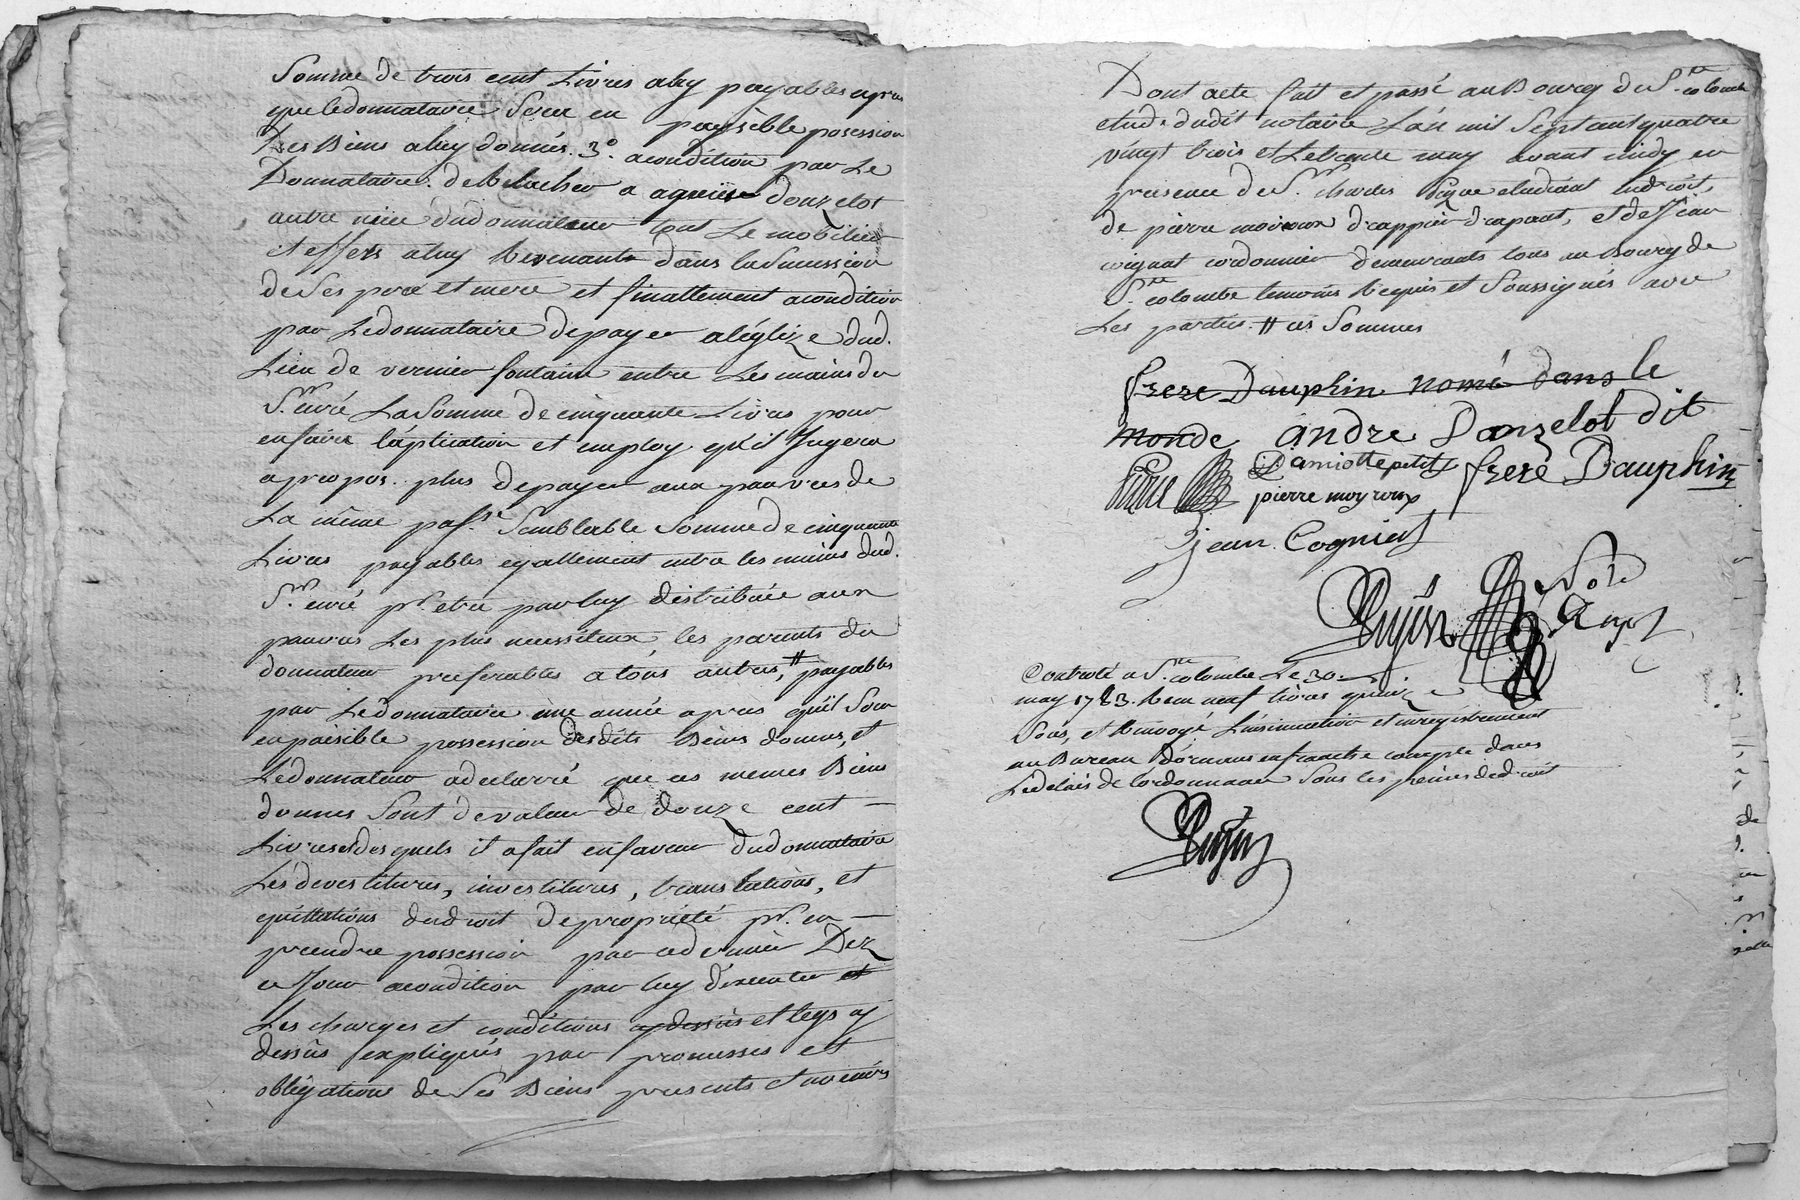 Somme de trois cent Livres aluy payables apres
que ledonnataire Sera en paysible posession
Des Biens aluy donnés. 3.° acondition par Le
Donnataire. de Relacher a agniie donzelot
autre niéce dudonnateur tout Le mobilier
et effets aluy Revenants dans laSuccession
deSes pere et mere et finallement acondition
par Ledonnataire depayer aléglize dud.
Lieu de vernier fontaine entre Les mains du
S.r curé LaSomme de cinquante Livres pour
enfaire láplication et employ qu'il Jugera
apropos. plus depayer aux pauvres de
La même pass.e Semblable Somme de cinquante
Livres payables egallement entre les mains dud.
S.r curé p.r etre parluy distribuée aux
pauvres Les plus necessiteux, les parents du
donnateur preferables atous autres, # payables
par Ledonnataire une année apres quil Sera
enpaisible possession desdits Biens donnés, et
Ledonnateur adeclarré que ces mêmes Biens
donnés Sont devaleur de douze cent
Livres desquels il afait enfaveur dudonnataire
Les devestitures, investitures, translations, et
quittations dudroit depropriété p.r en
prendre possession par cedernier Dez
ce Jour acondition par luy déxecuter et
Les charges et conditions cydessus et legs cy
dessus expliqués par promesses et
obligations de Ses Biens presents et avenirs
Dont acte fait et passé auBourg de S.te colombe
etude dudit notaire Lán mil Sept cent quatre
vingt trois et Letrente may avant midy en
presence de S.r charles étudiant endroit,
de pierre drappier drapant, et de Jean
coignat cordonnier demeurants tous au Bourg de
S.te colombe temoins Requis et Soussignés avec
Les parties. # ces Sommes
frere Dauphin nomé dans le
monde andre Donzelot dit
Damiotte petit frere Dauphin
pierre moyroux
jean Cogniat
Controlé a S.te colombe Le 30
may 1783. Recu neuf livres quinze
Sous, et Renvoyé Linsinuation et enregistrement
au Bureau Dórnans enfranche comple dans
Ledelais de lordonnance Sous les peines dedroit